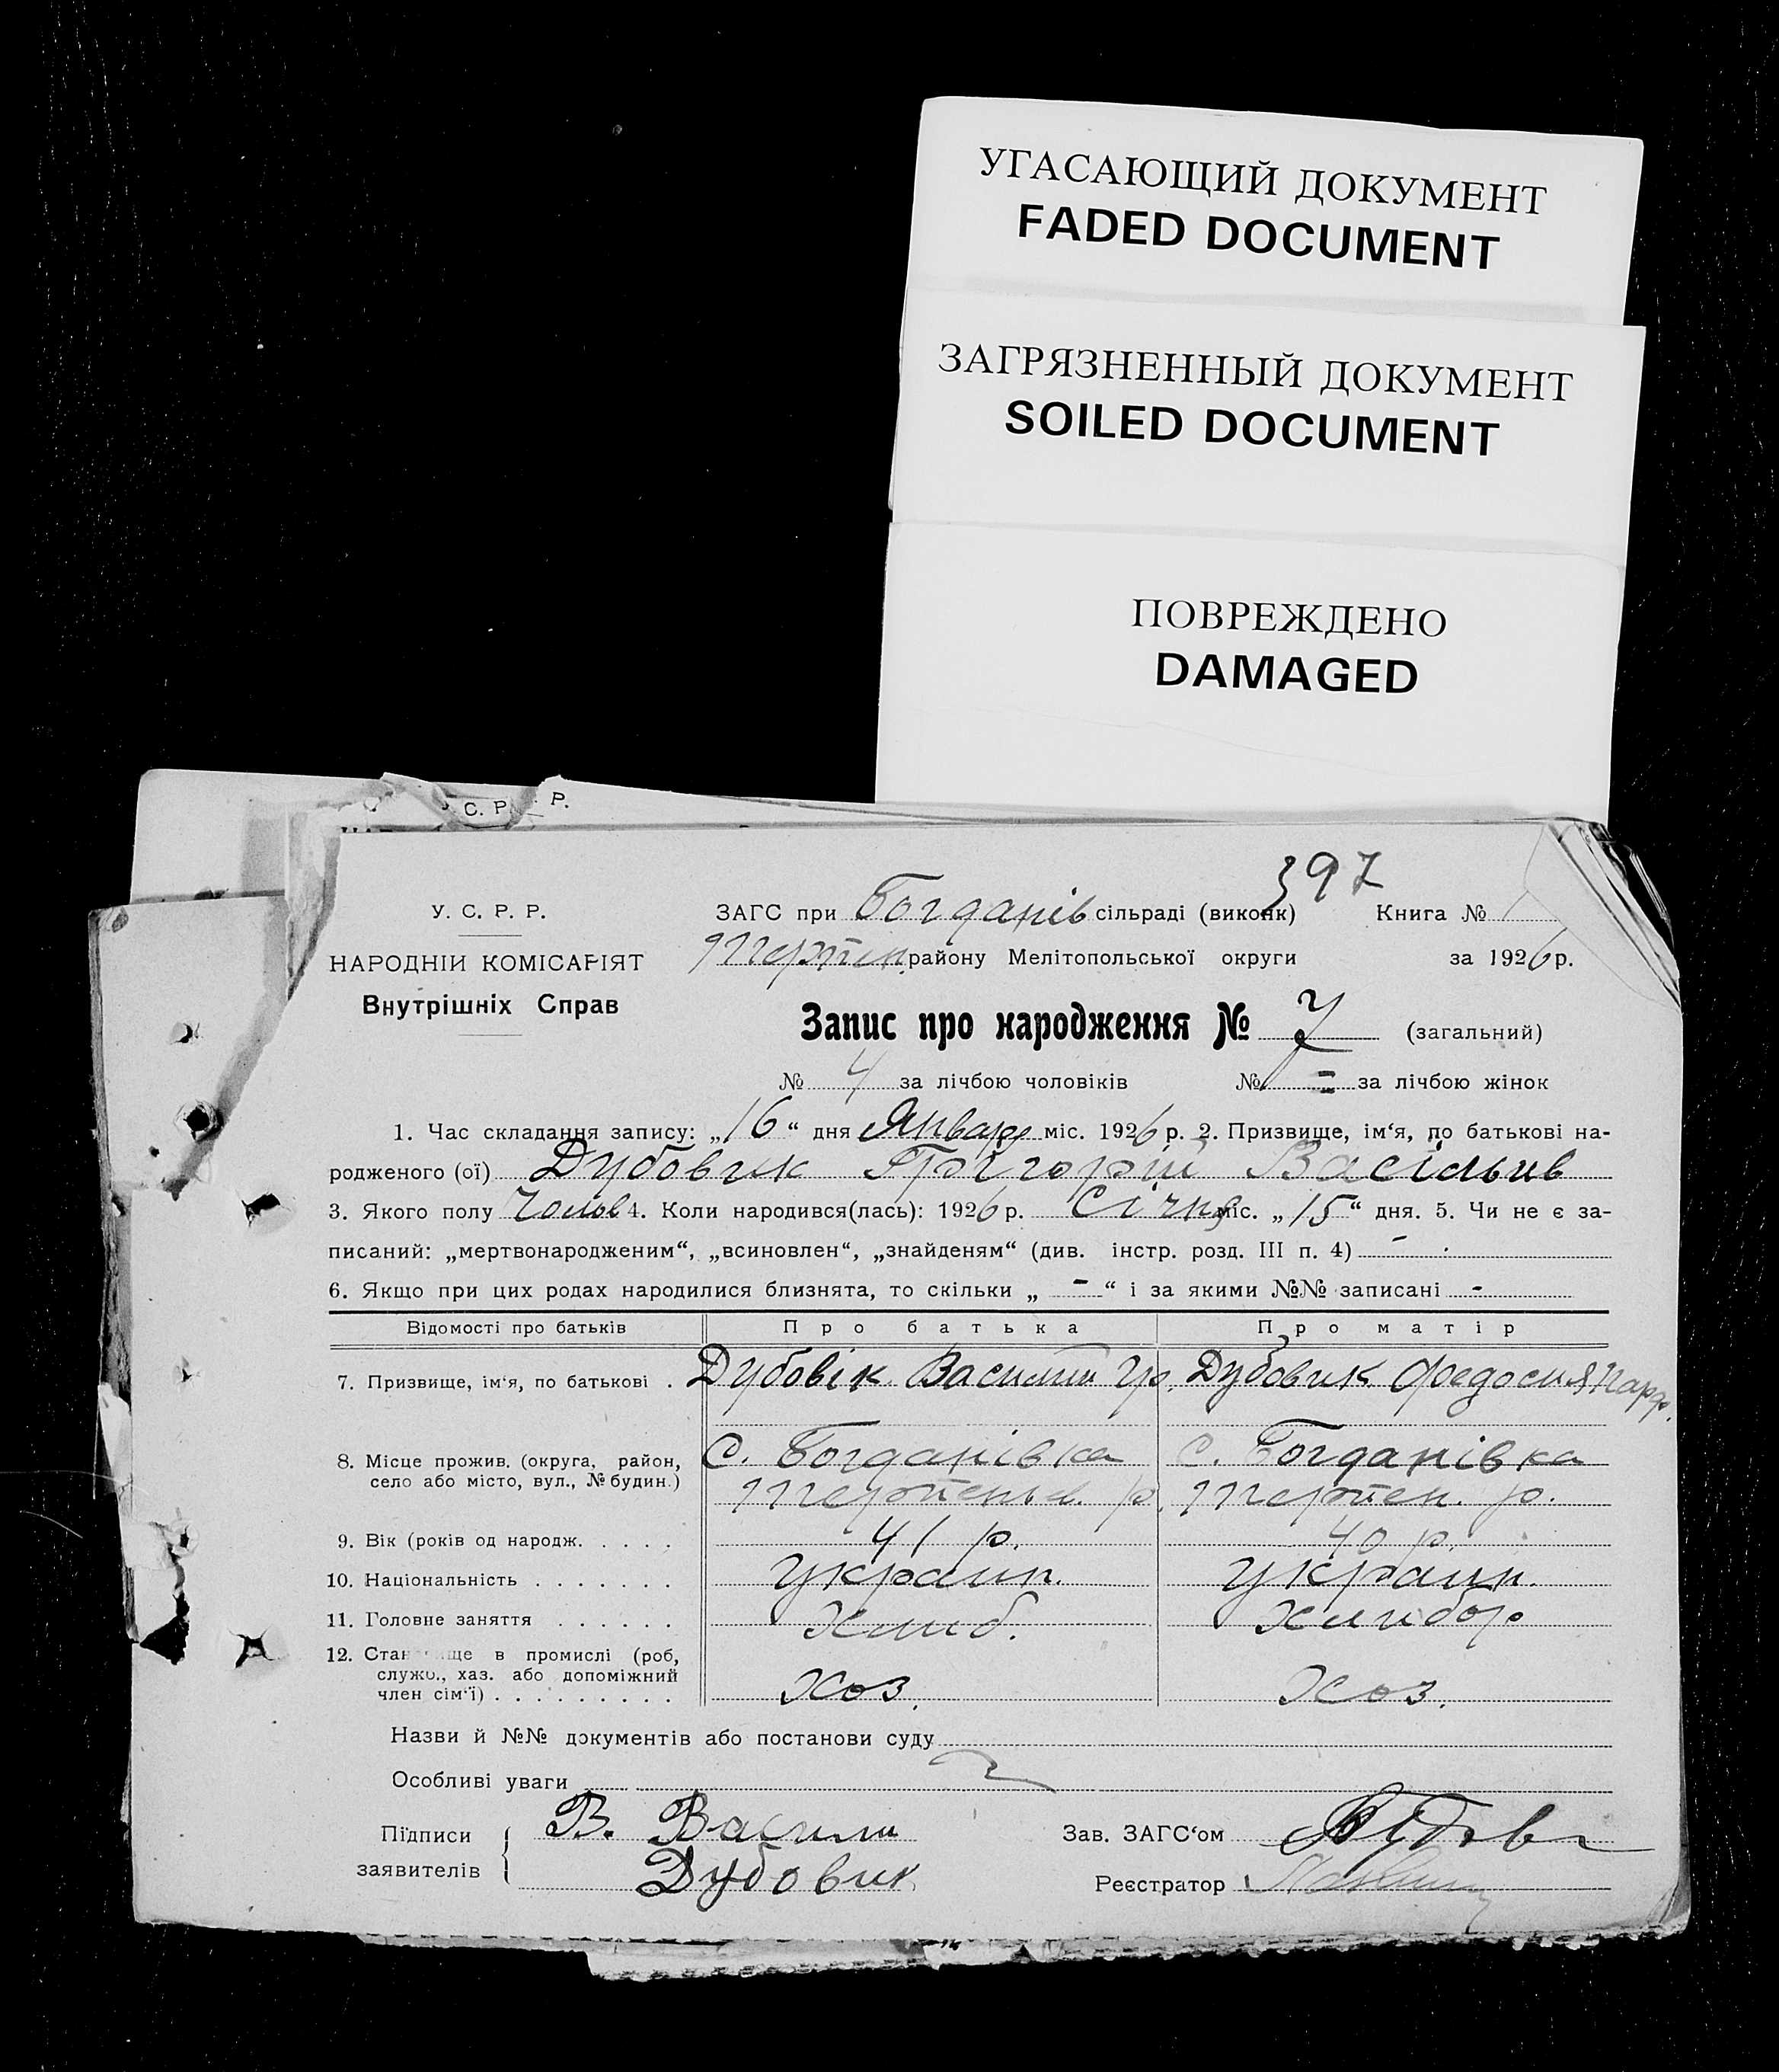 УГАСАЮЩИЙ ДОКУМЕНТ
FADED DOCUMENT
ЗАГРЯЗНЕННЫЙ ДОКУМЕНТ
SOILED DOCUMENT
ПОВРЕЖДЕНО
DAMAGED
С. Р. Р.
397
У. С. Р. Р.
НАРОДНІЙ КОМІСАРІЯТ
Внутрішніх Справ
ЗАГС при Богданів сільраді (виконк) Книга №
Терпен. району Мелітопольської округи за 1926 р.
Запис про народження № 7 (загальний)
№ 4 за лічбою чоловіків № = за лічбою жінок
1. Час складання запису: „16“ дня Январ міс. 1926 р. 2. Призвище, ім‘я, по батькові на-
родженого (ої) Дубовик Григорій Васільив
3. Якого полу Чолов 4. Коли народився(лась): 1926 р. Січня міс. „15“ дня. 5. Чи не є за-
писаний: „мертвонародженим“, „всиновлен“, „знайденям“ (див. інстр. розд. III п. 4) -
6. Якщо при цих родах народилися близнята, то скільки „ - “ і за якими №№ записані -
Відомості про батьків Про батька Про матір
7. Призвище, ім‘я, по батькові . Дубовік Василий Гр. Дубовик Федосия Парф.
8. Місце прожив. (округа, район, село або місто, вул., № будин.) С. Богданівка С. Богданівка
Терпеньев. р. Терпен. р.
9. Вік (років од народж. . . . . 41 р. 40 р.
10. Національність . . . . . . . Украин. Украин.
11. Головне заняття . . . . . . Хлиб. Хлибор
12. Становище в промислі (роб,
служб., хаз. або допоміжний
член сім‘ї) . . . . . . . . . Хоз. Хоз.
Назви й №№ документів або постанови суду
Особливі уваги
Підписи заявителів В. Васили
Дубовик
Зав. ЗАГС‘ом
Реєстратор